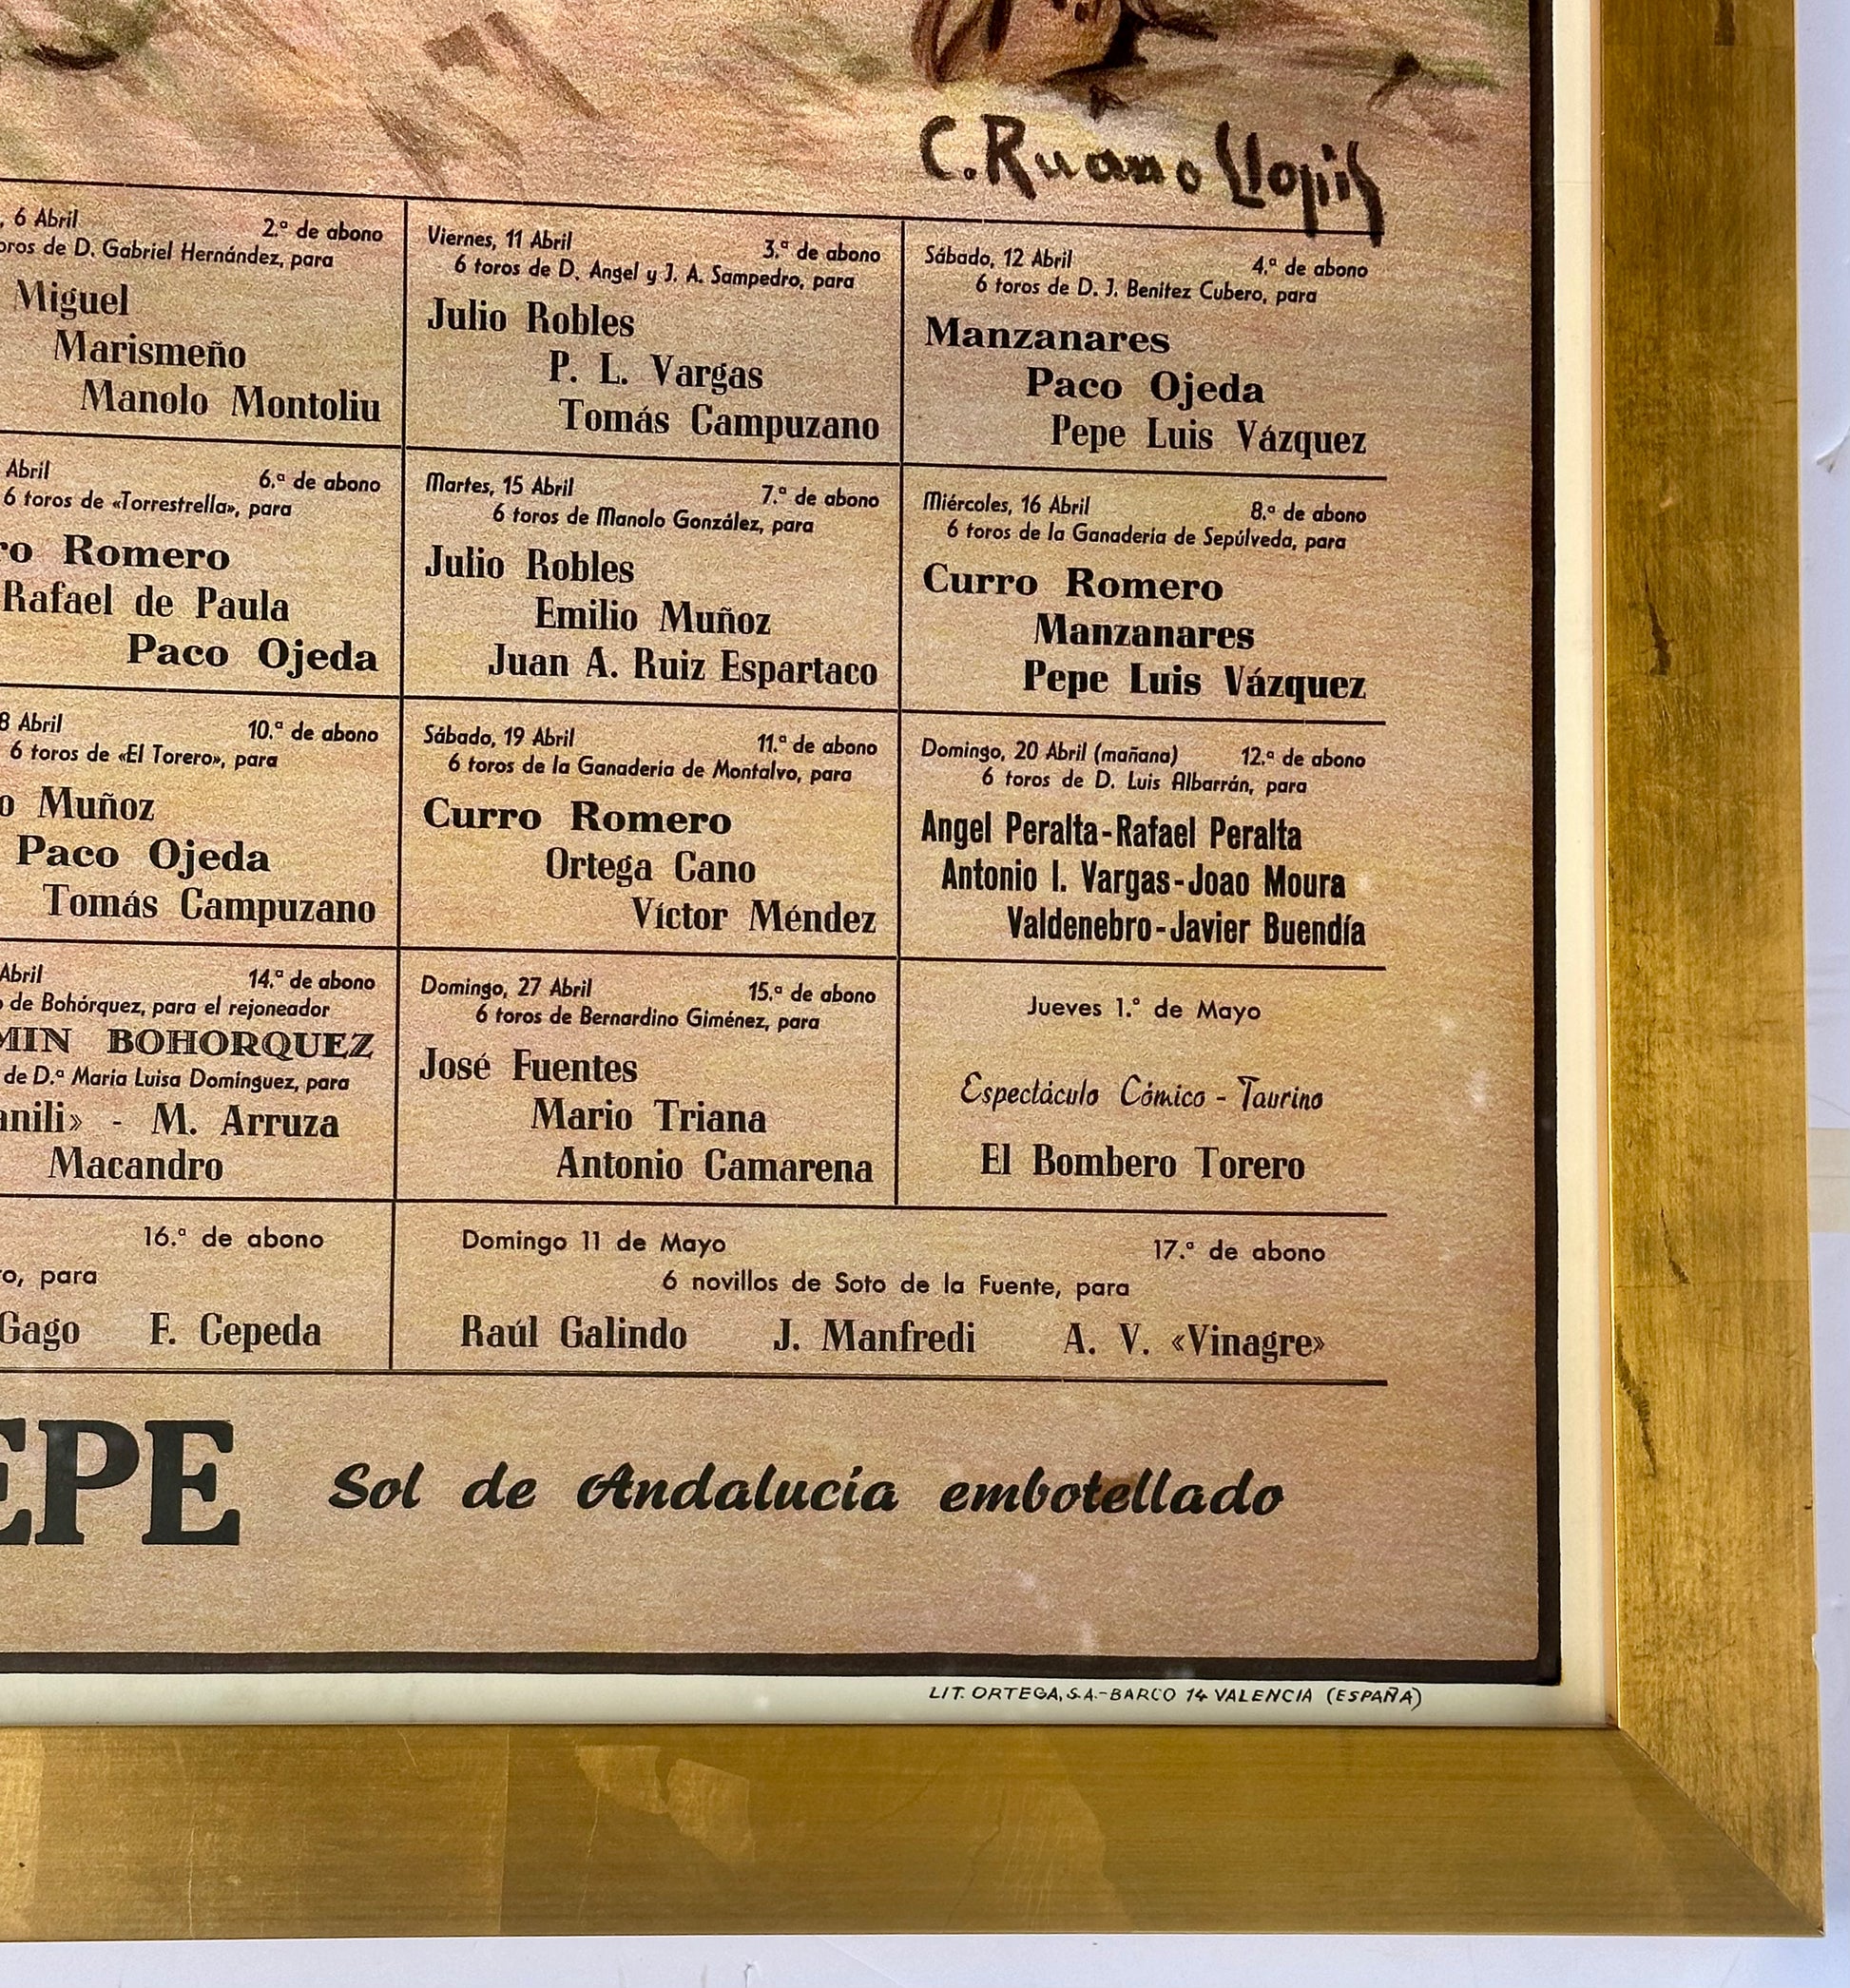 C. Ruano Llopis
, 6 Abril 2.ª de abono
oros de D. Gabriel Hernández, para
Miguel
Marismeño
Manolo Montoliu
Viernes, 11 Abril 3.ª de abono
6 toros de D. Angel y J. A. Sampedro, para
Julio Robles
P. L. Vargas
Tomás Campuzano
Sábado, 12 Abril 4.ª de abono
6 toros de D. J. Benítez Cubero, para
Manzanares
Paco Ojeda
Pepe Luis Vázquez
Abril 6.ª de abono
6 toros de «Torrestrella», para
ro Romero
Rafael de Paula
Paco Ojeda
Martes, 15 Abril 7.ª de abono
6 toros de Manolo González, para
Julio Robles
Emilio Muñoz
Juan A. Ruiz Espartaco
Miércoles, 16 Abril 8.ª de abono
6 toros de la Ganadería de Sepúlveda, para
Curro Romero
Manzanares
Pepe Luis Vázquez
8 Abril 10.ª de abono
6 toros de «El Torero», para
o Muñoz
Paco Ojeda
Tomás Campuzano
Sábado, 19 Abril 11.ª de abono
6 toros de la Ganadería de Montalvo, para
Curro Romero
Ortega Cano
Víctor Méndez
Domingo, 20 Abril (mañana) 12.ª de abono
6 toros de D. Luis Albarrán, para
Angel Peralta-Rafael Peralta
Antonio I. Vargas-Joao Moura
Valdenebro-Javier Buendía
Abril 14.ª de abono
de Bohórquez, para el rejoneador
MIN BOHORQUEZ
de D.ª María Luisa Domínguez, para
anili» - M. Arruza
Macandro
Domingo, 27 Abril 15.ª de abono
6 toros de Bernardino Giménez, para
José Fuentes
Mario Triana
Antonio Camarena
Jueves 1.º de Mayo
Espectáculo Cómico - Taurino
El Bombero Torero
16.ª de abono
o, para
Gago F. Cepeda
Domingo 11 de Mayo 17.ª de abono
6 novillos de Soto de la Fuente, para
Raúl Galindo J. Manfredi A. V. «Vinagre»
EPE Sol de Andalucía embotellado
LIT. ORTEGA, S.A.-BARCO 14 VALENCIA (ESPAÑA)